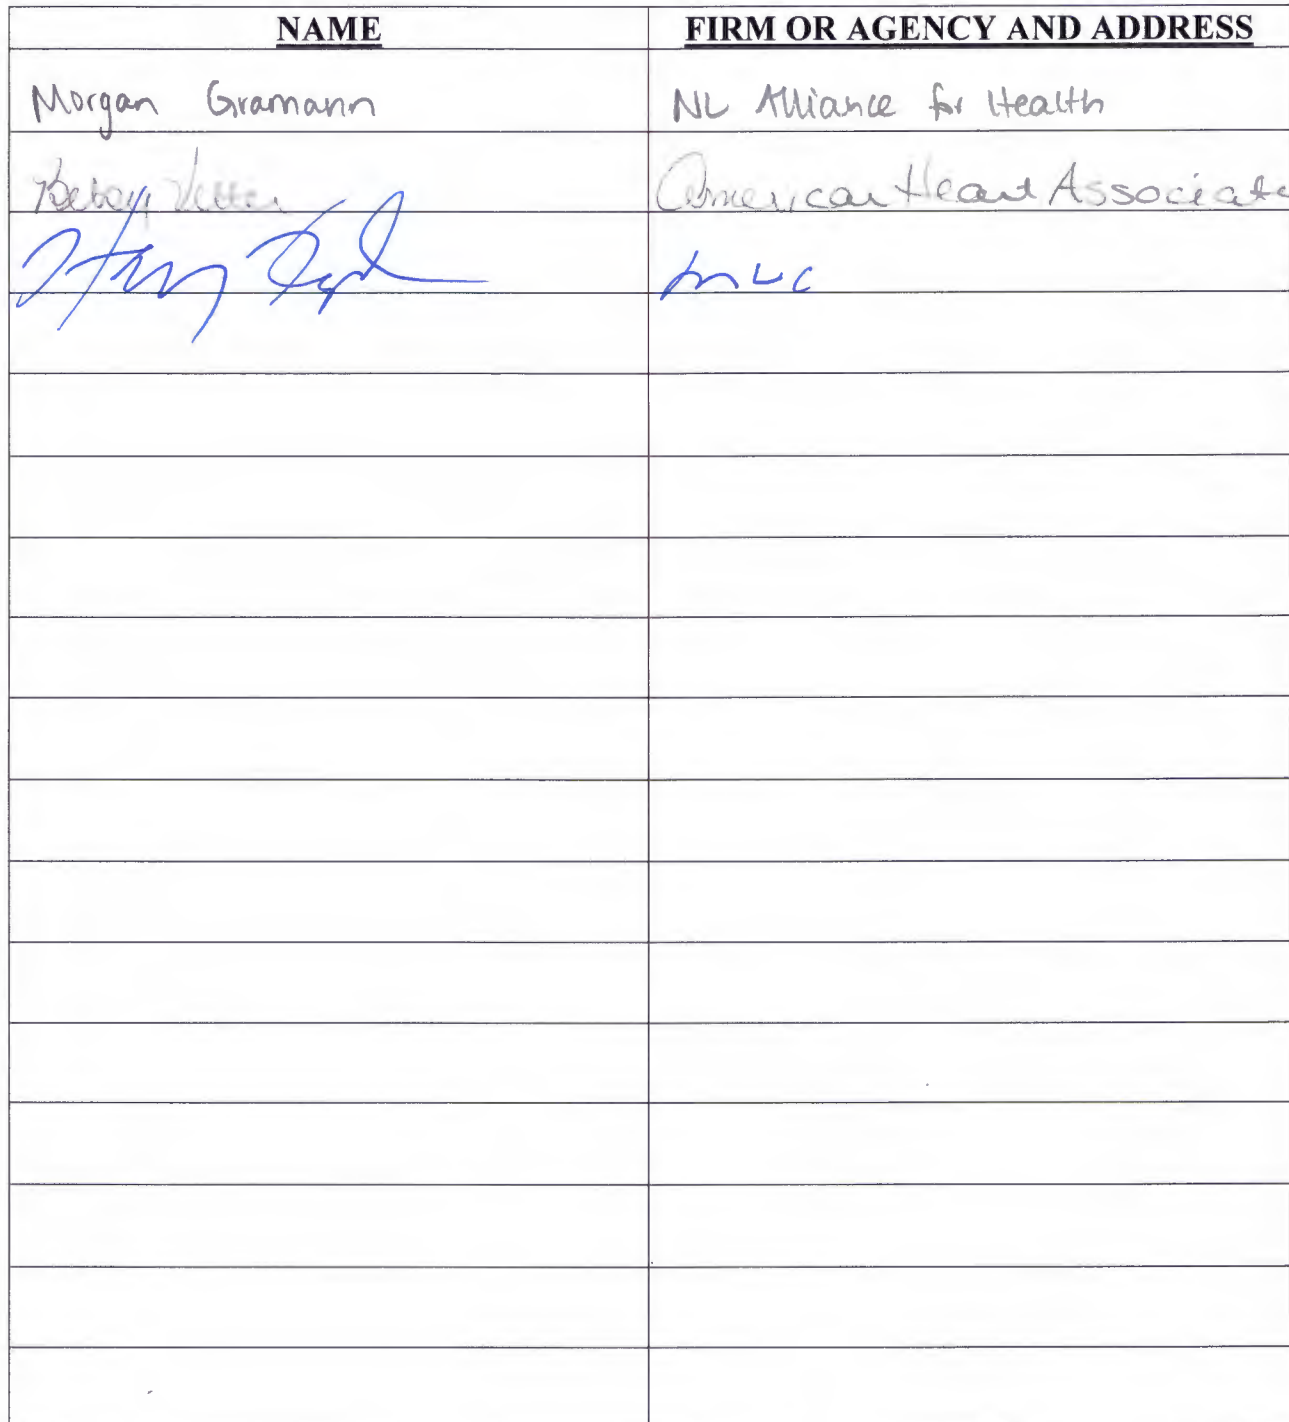 NAME FIRM OR AGENCY AND ADDRESS
Morgan Gramann NL Alliance for Health
Betsy Vetter American Heart Associate